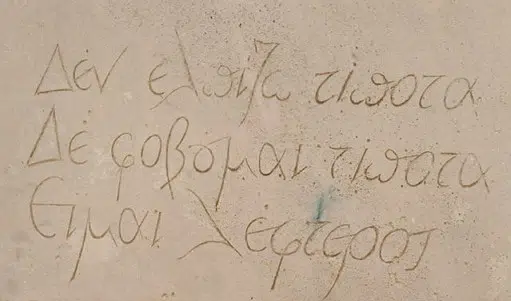 Δὲν ἐλπίζω τίποτα
Δὲ φοβόμαι τίποτα
Εἶμαι λέφτερος